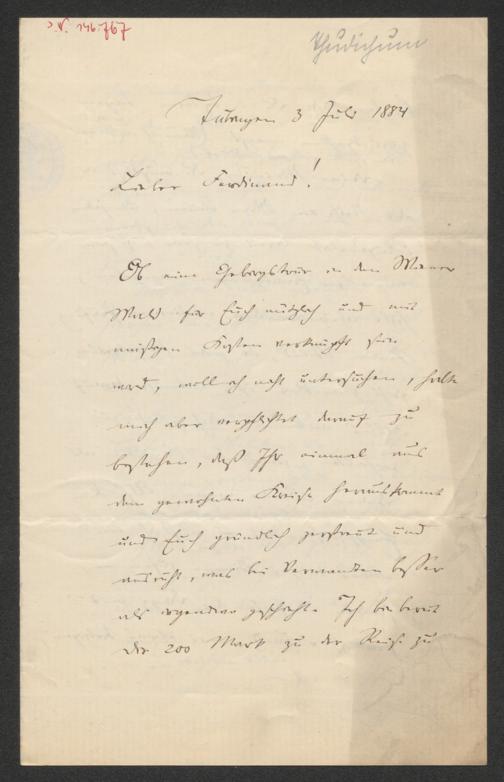 I.N. 146.767
Thudichum
Tübingen 3 Juli 1884
Lieber Ferdinand!
Ob eine Gebirgstour in den Wiener
Wald für Euch nützlich und mit
mäßigen Kosten verknüpft sein
wird, will ich nicht untersuchen, halte
mich aber verpflichtet darauf zu
bestehen, daß Ihr einmal aus
dem gewohnten Kreise herauskommt
und Euch gründlich zerstreut und
ausruht, was bei Verwandten besser
als irgendwo geschieht. Ich bin bereit
die 200 Mark zu der Reise zu